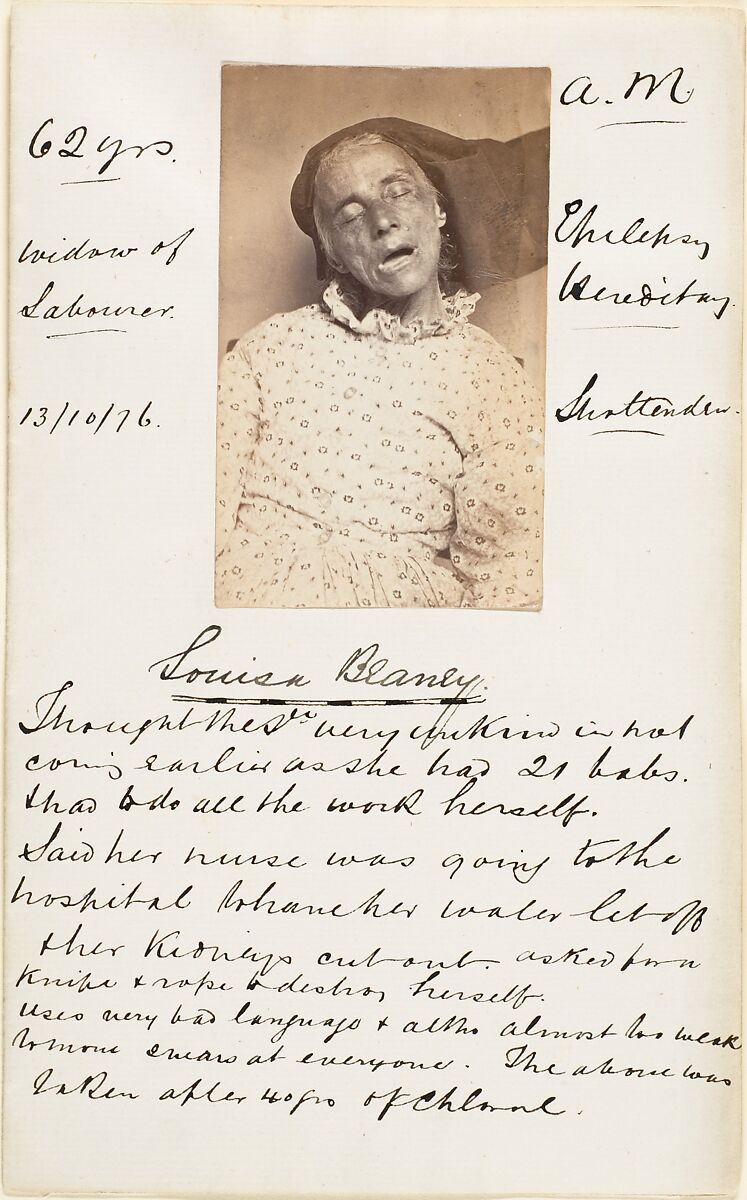 62 yrs.
widow of
Labourer.
13/10/76.
a. M.
Epilepsy
Hereditary.
Shottenden.
Louisa Blaney.
Thought the Dr very unkind in not
coming earlier as she had 21 babs.
& had to do all the work herself.
Said her nurse was going to the
hospital to have her water let off
& her Kidneys cut out. asked for a
Knife & rope to destroy herself.
uses very bad language & altho almost too weak
to move swears at everyone. The above was
taken after 40 grs of Chloral.